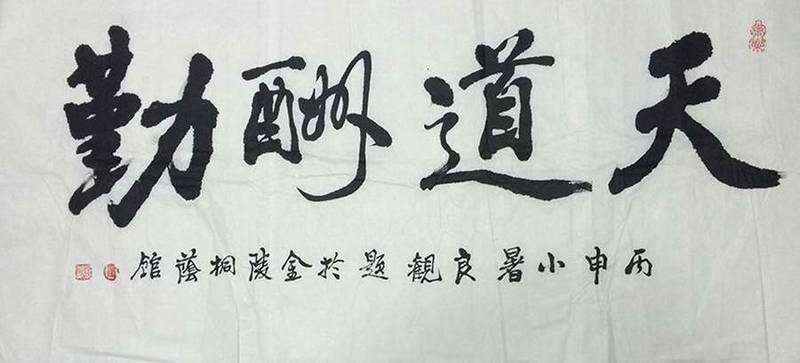 天道酬勤
丙申小暑良觀題於金陵桐蔭館